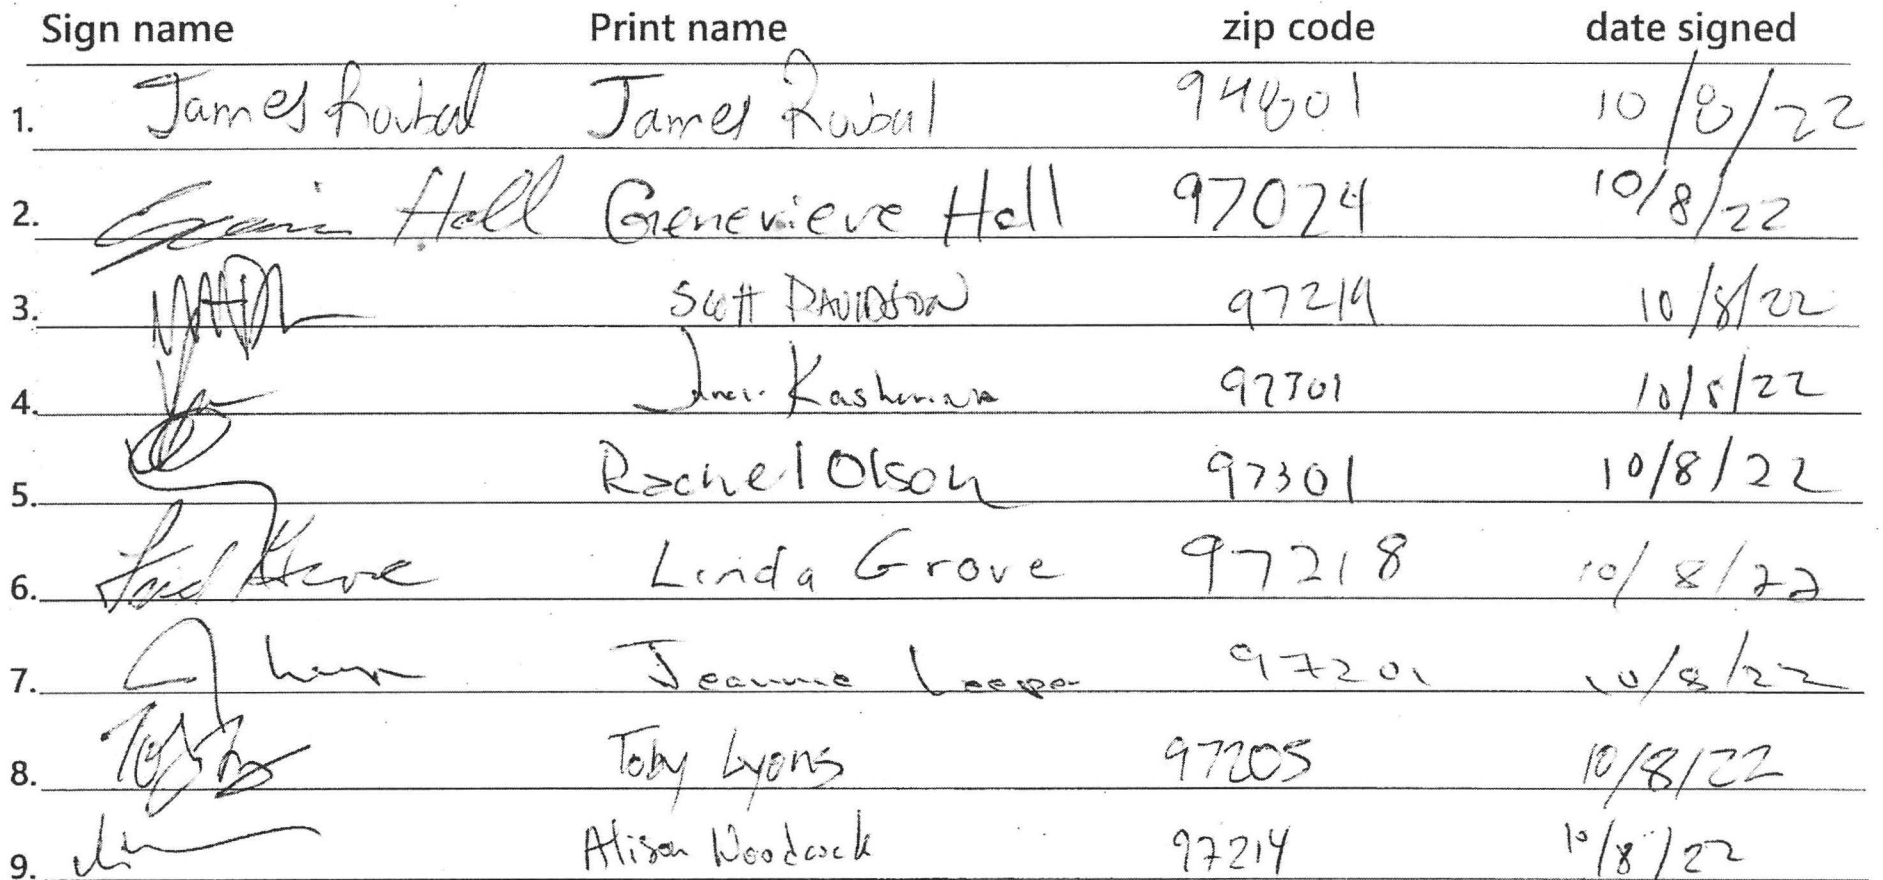 Sign name Print name zip code date signed
1. James Roubal James Roubal 94801 10/8/22
2. Hall Genevieve Hall 97024 10/8/22
3. SCOTT DAVIDSON 97214 10/8/22
4. Kashinana 97301 10/8/22
5. Rachel Olson 97301 10/8/22
6. Linda Grove 97218 10/8/22
7. Jeannie Leeper 97201 10/8/22
8. Toby Lyons 97205 10/8/22
9. Alison Woodcock 97214 10/8/22